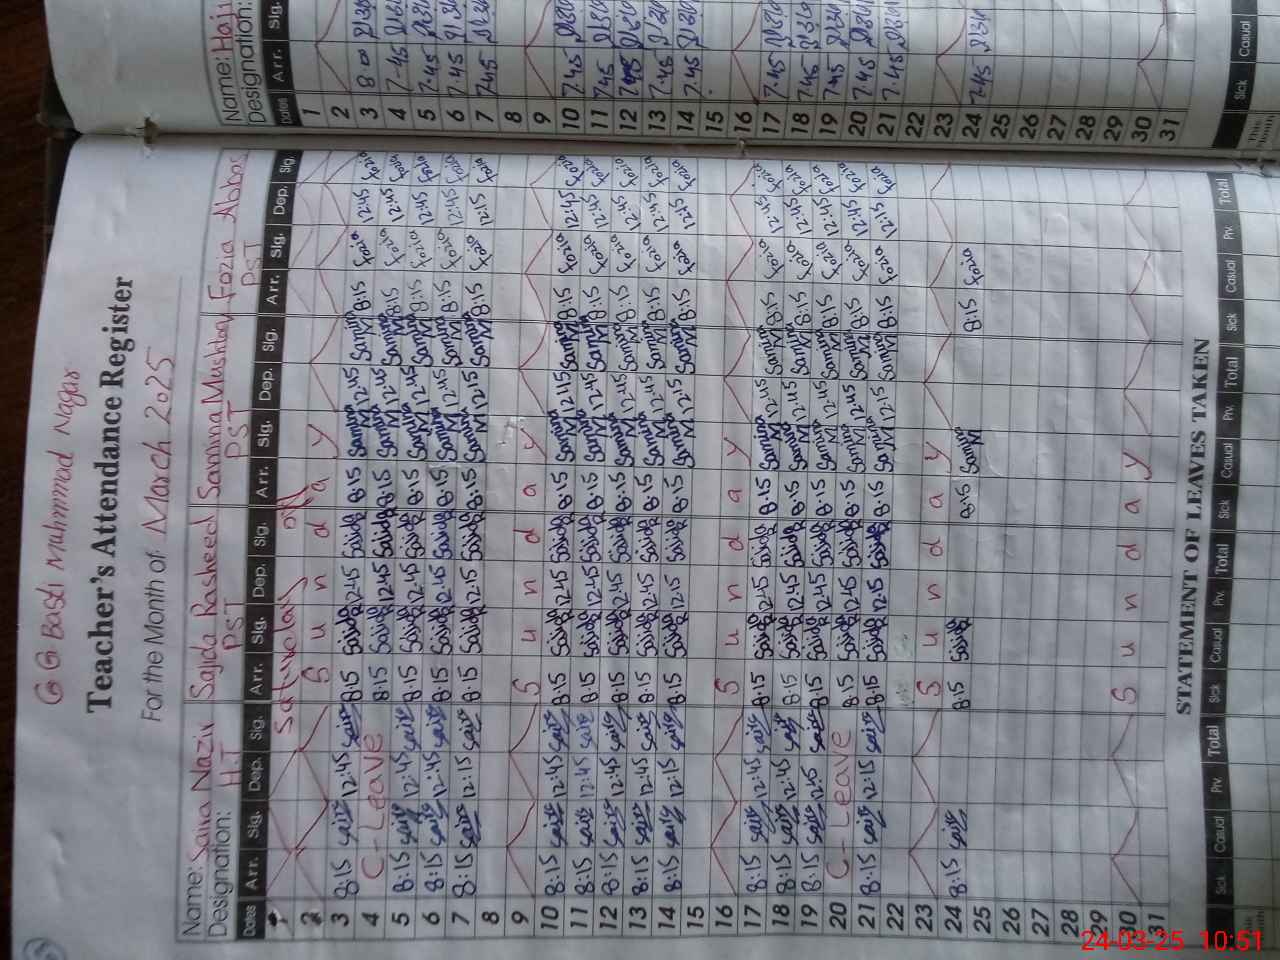 G G Basti Muhammad Nagar
Teacher's Attendance Register
For the Month of March 2025
Name: Saira Nazir Sajida Rasheed Samina Mushtaq Fozia Abbas
Designation: H.T PST PST PST
Dates Arr. Sig. Dep. Sig. Arr. Sig. Dep. Sig. Arr. Sig. Dep. Sig. Arr. Sig. Dep. Sig.
1 Saturday off
2 Sunday
3 8:15 12:45 8:15 Sajida 12:45 Sajida 8:15 Samina M 12:45 Samina M 8:15 Fozia 12:45 Fozia
4 C-Leave 8:15 Sajida 12:45 Sajida 8:15 Samina M 12:45 Samina M 8:15 Fozia 12:45 Fozia
5 8:15 12:45 8:15 Sajida 12:45 Sajida 8:15 Samina M 12:45 Samina M 8:15 Fozia 12:45 Fozia
6 8:15 12:45 8:15 Sajida 12:45 Sajida 8:15 Samina M 12:45 Samina M 8:15 Fozia 12:45 Fozia
7 8:15 12:15 8:15 Sajida 12:15 Sajida 8:15 Samina M 12:15 Samina M 8:15 Fozia 12:15 Fozia
8
9 Sunday
10 8:15 12:45 8:15 Sajida 12:45 Sajida 8:15 Samina M 12:15 Samina M 8:15 Fozia 12:45 Fozia
11 8:15 12:45 8:15 Sajida 12:45 Sajida 8:15 Samina M 12:45 Samina M 8:15 Fozia 12:45 Fozia
12 8:15 12:45 8:15 Sajida 12:45 Sajida 8:15 Samina M 12:45 Samina M 8:15 Fozia 12:45 Fozia
13 8:15 12:45 8:15 Sajida 12:45 Sajida 8:15 Samina M 12:45 Samina M 8:15 Fozia 12:45 Fozia
14 8:15 12:15 8:15 Sajida 12:15 Sajida 8:15 Samina M 12:15 Samina M 8:15 Fozia 12:15 Fozia
15
16 Sunday
17 8:15 12:45 8:15 Sajida 12:45 Sajida 8:15 Samina M 12:45 Samina M 8:15 Fozia 12:45 Fozia
18 8:15 12:45 8:15 Sajida 12:45 Sajida 8:15 Samina M 12:45 Samina M 8:15 Fozia 12:45 Fozia
19 8:15 8:15 Sajida 12:45 Sajida 8:15 Samina M 12:45 Samina M 8:15 Fozia 12:45 Fozia
20 C-Leave 8:15 Sajida 12:45 Sajida 8:15 Samina M 12:45 Samina M 8:15 Fozia 12:45 Fozia
21 8:15 12:15 8:15 Sajida 12:15 Sajida 8:15 Samina M 12:15 Samina M 8:15 Fozia 12:15 Fozia
22
23 Sunday
24 8:15 8:15 Sajida 8:15 Samina M 8:15 Fozia
25
26
27
28
29
30 Sunday
31
STATEMENT OF LEAVES TAKEN
Sick Casual Prv. Total Sick Casual Prv. Total Sick Casual Prv. Total Sick Casual Prv. Total
Month
Name:
Designation:
Dates Arr. Sig.
1
2
3 8 00
4 7-45
5 7-45
6 7-45
7 7:45
8
9
10 7.45
11 7.45
12 7.45
13 7.45
14 7.45
15
16
17 7.45
18 7.45
19 7.45
20 7.45
21 7.45
22
23
24 7.45
25
26
27
28
29
30
31
Sick Casual
This
Month
24-03-25 10:51